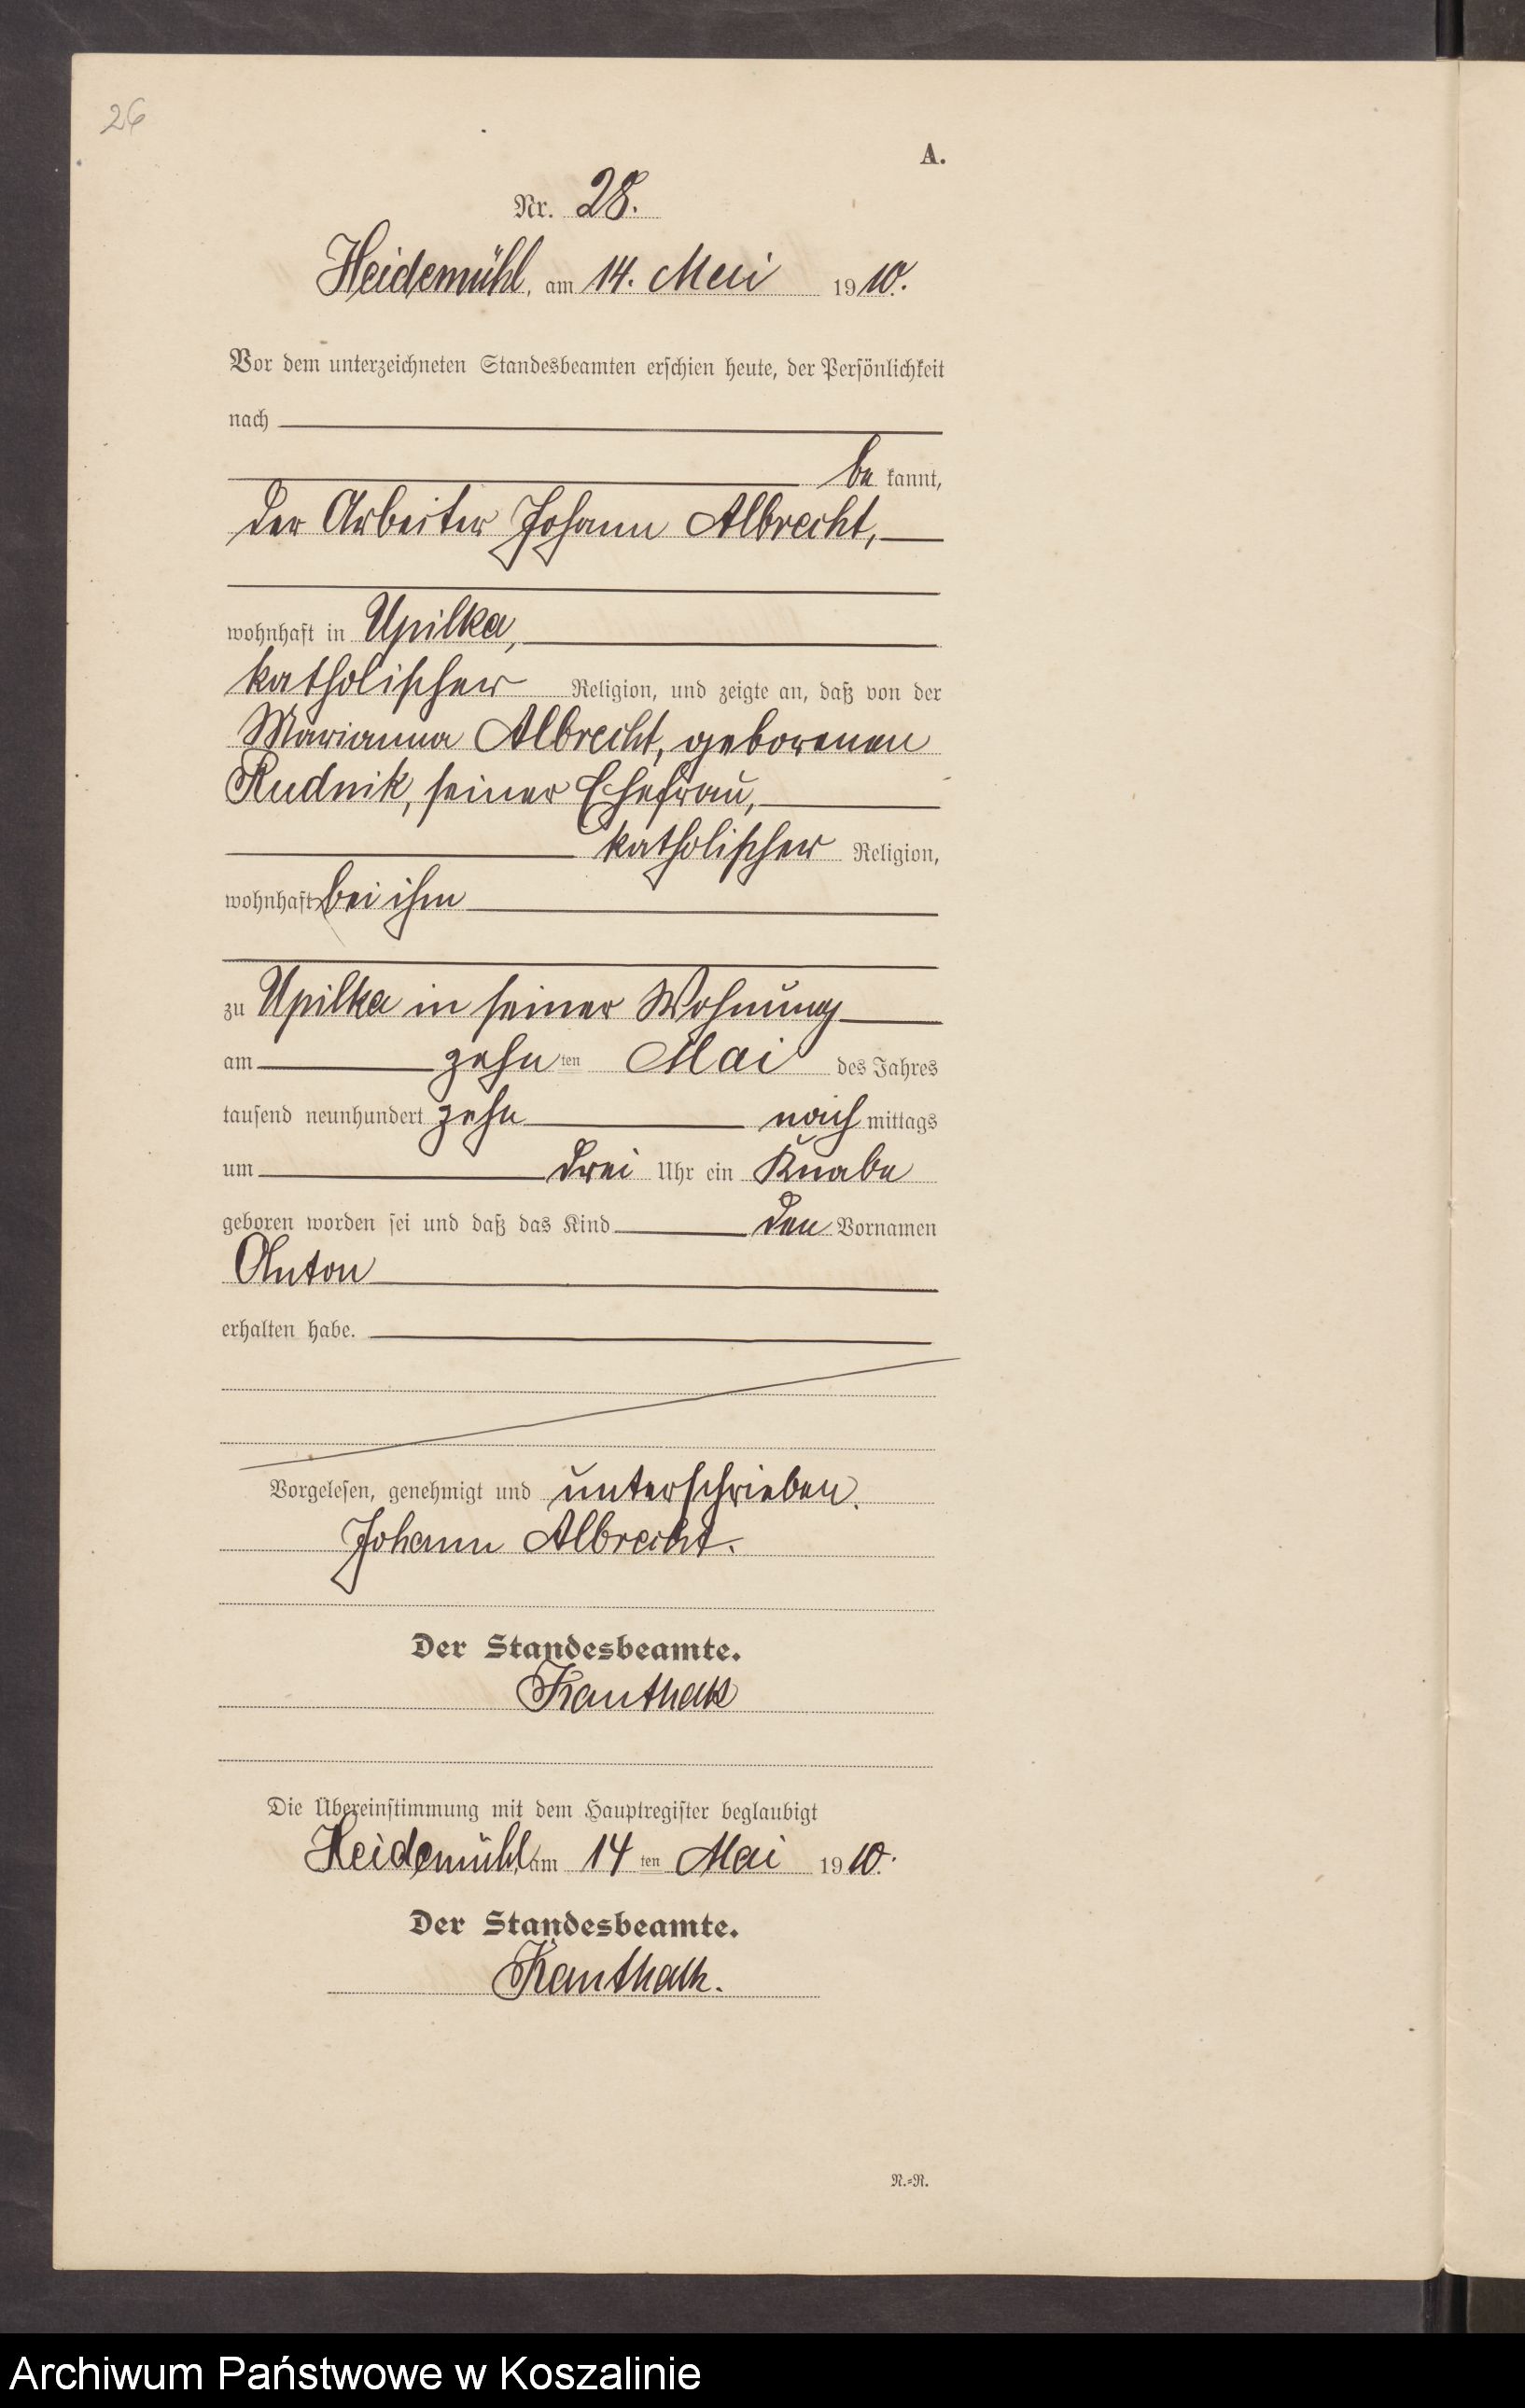 26
A.
Nr. 28.
Heidemühl, am 14. Mai 1910.
Vor dem unterzeichneten Standesbeamten erschien heute, der Persönlichkeit
nach
be kannt,
der Arbeiter Johann Albrecht,
wohnhaft in Upilka,
katholischer Religion, und zeigte an, daß von der
Marianna Albrecht, geborenen
Rudnik, seiner Ehefrau,
katholischer Religion,
wohnhaft bei ihm
zu Upilka in seiner Wohnung
am zehn ten Mai des Jahres
tausend neunhundert zehn nach mittags
um drei Uhr ein Knabe
geboren worden sei und daß das Kind den Vornamen
Anton
erhalten habe.
Vorgelesen, genehmigt und unterschrieben.
Johann Albrecht.
Der Standesbeamte.
Kanthak
Die Übereinstimmung mit dem Hauptregister beglaubigt
Heidemühl am 14 ten Mai 1910.
Der Standesbeamte.
Kanthak.
N.=N.
Archiwum Państwowe w Koszalinie